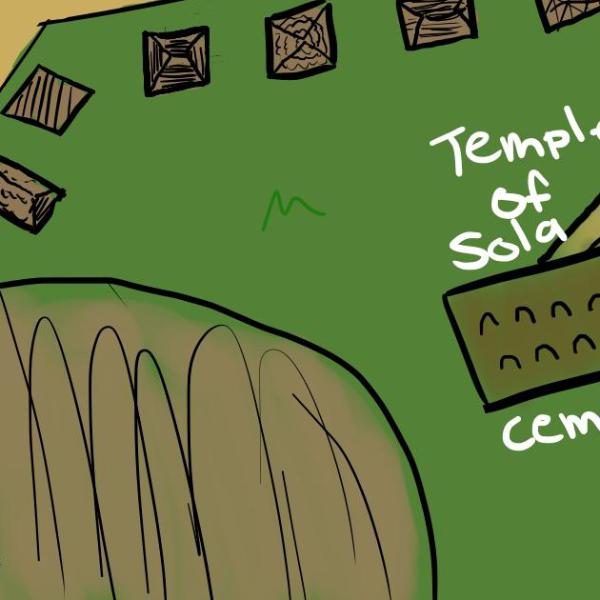 Temple
of
Sola
cem